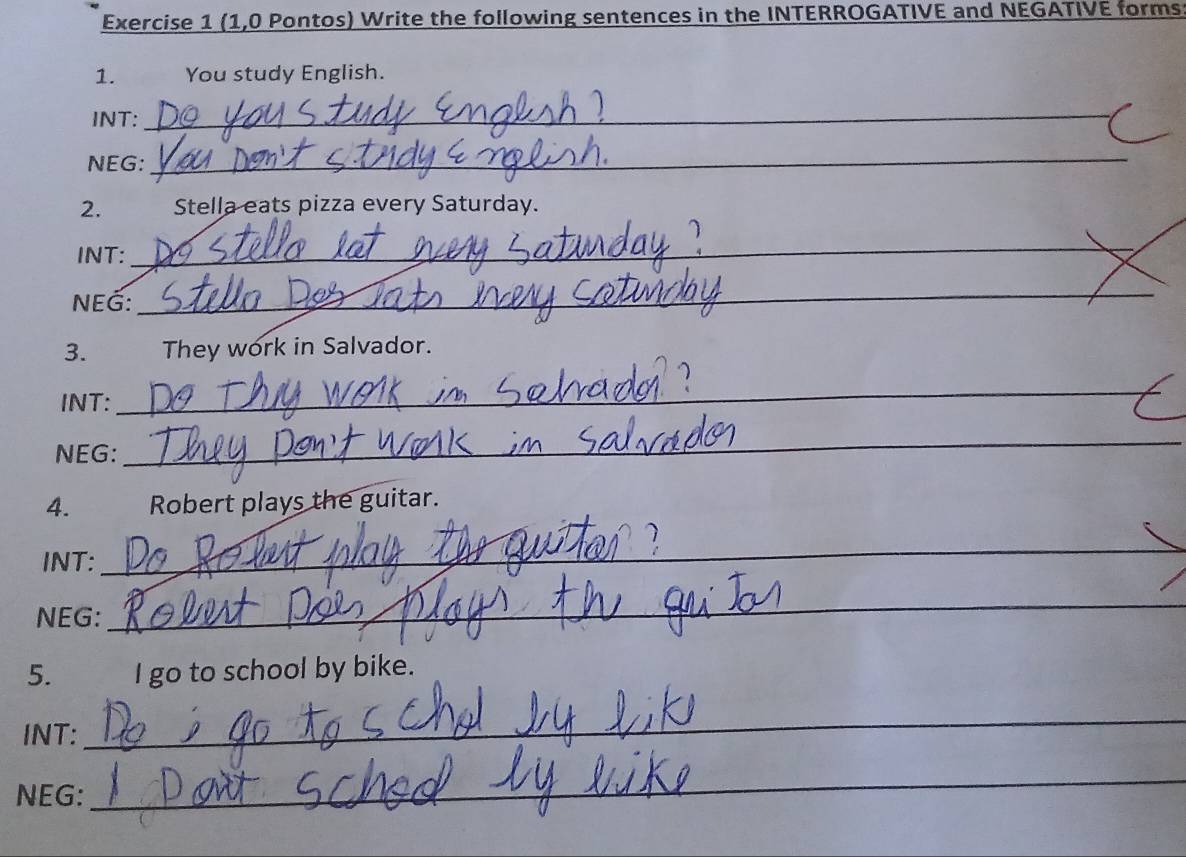 Exercise 1 (1,0 Pontos) Write the following sentences in the INTERROGATIVE and NEGATIVE forms:
1. You study English.
INT: Do you study English?
C
NEG: You Don't study English.
2. Stella eats pizza every Saturday.
INT: Do stella eat every Saturday?
NEG: Stella Does eats every Saturday
3. They work in Salvador.
INT: Do They work in Salvador?
C
NEG: They Don't work in Salvador
4. Robert plays the guitar.
INT: Do Robert play the guitar?
NEG: Robert Does plays the guitar
5. I go to school by bike.
INT: Do i go to school by bike
NEG: I Don't school by bike